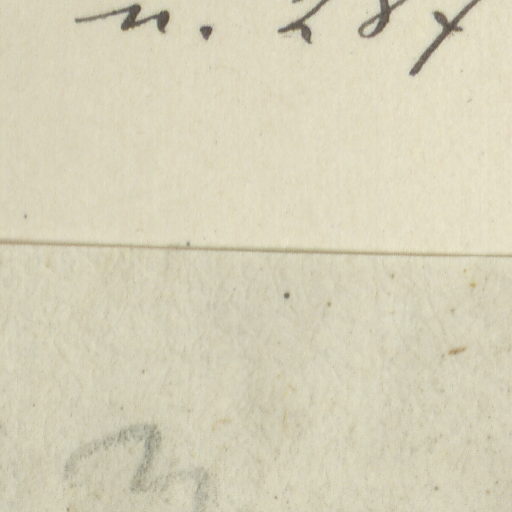 n. 287